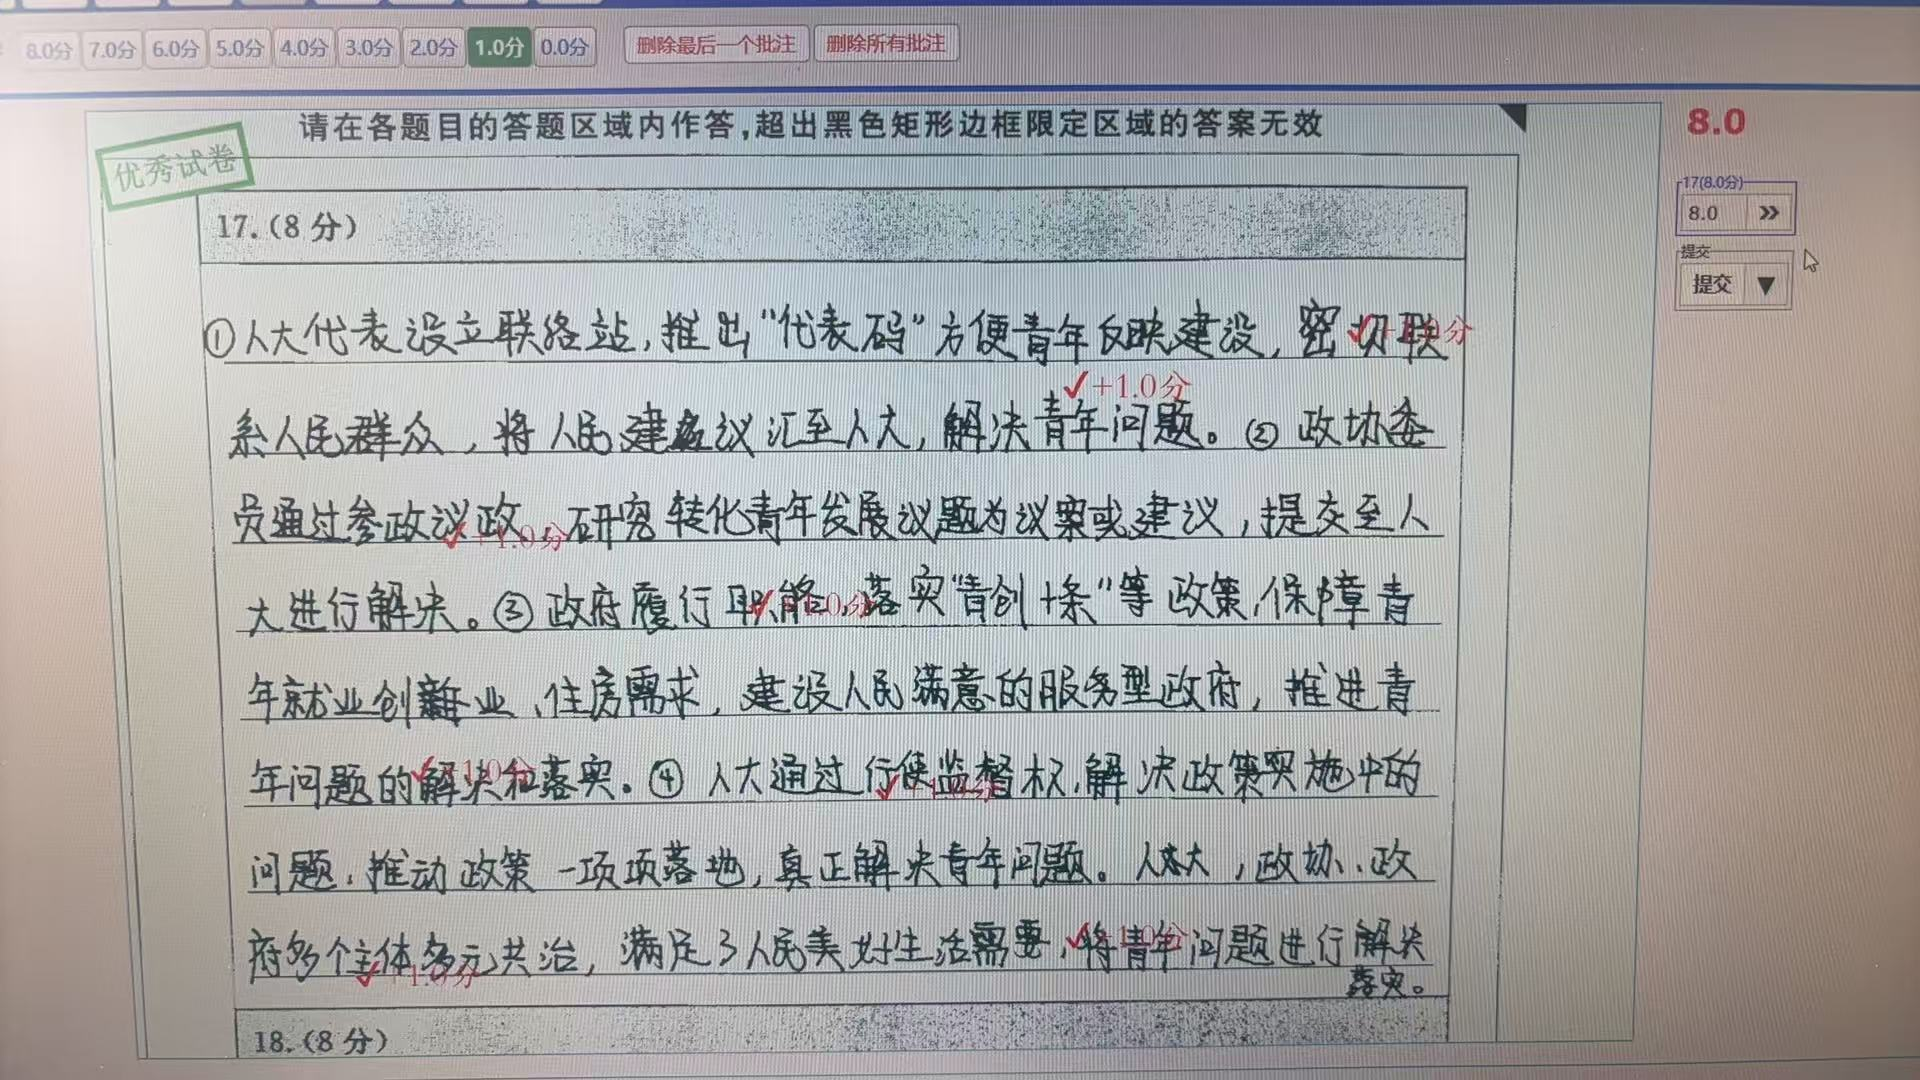 8.0分 7.0分 6.0分 5.0分 4.0分 3.0分 2.0分 1.0分 0.0分 删除最后一个批注 删除所有批注
请在各题目的答题区域内作答,超出黑色矩形边框限定区域的答案无效
优秀试卷
8.0
17(8.0分)
8.0 »
提交
提交 ▼
17.(8分)
①人大代表设立联络站,推出“代表码”方便青年反映建设,密切联
✓+1.0分
✓+1.0分
系人民群众,将人民建议汇至人大,解决青年问题。②政协委
员通过参政议政,研究转化青年发展议题为议案或建议,提交至人
✓+1.0分
大进行解决。③政府履行职能,落实“青创十条”等政策,保障青
✓+1.0分
年就业创业、住房需求,建设人民满意的服务型政府,推进青
年问题的解决和落实。④人大通过行使监督权,解决政策实施中的
✓+1.0分
✓+1.0分
问题,推动政策一项项落地,真正解决青年问题。人大,政协、政
府多个主体多元共治,满足了人民美好生活需要,将青年问题进行解决
✓+1.0分
✓+1.0分
落实。
18.(8分)